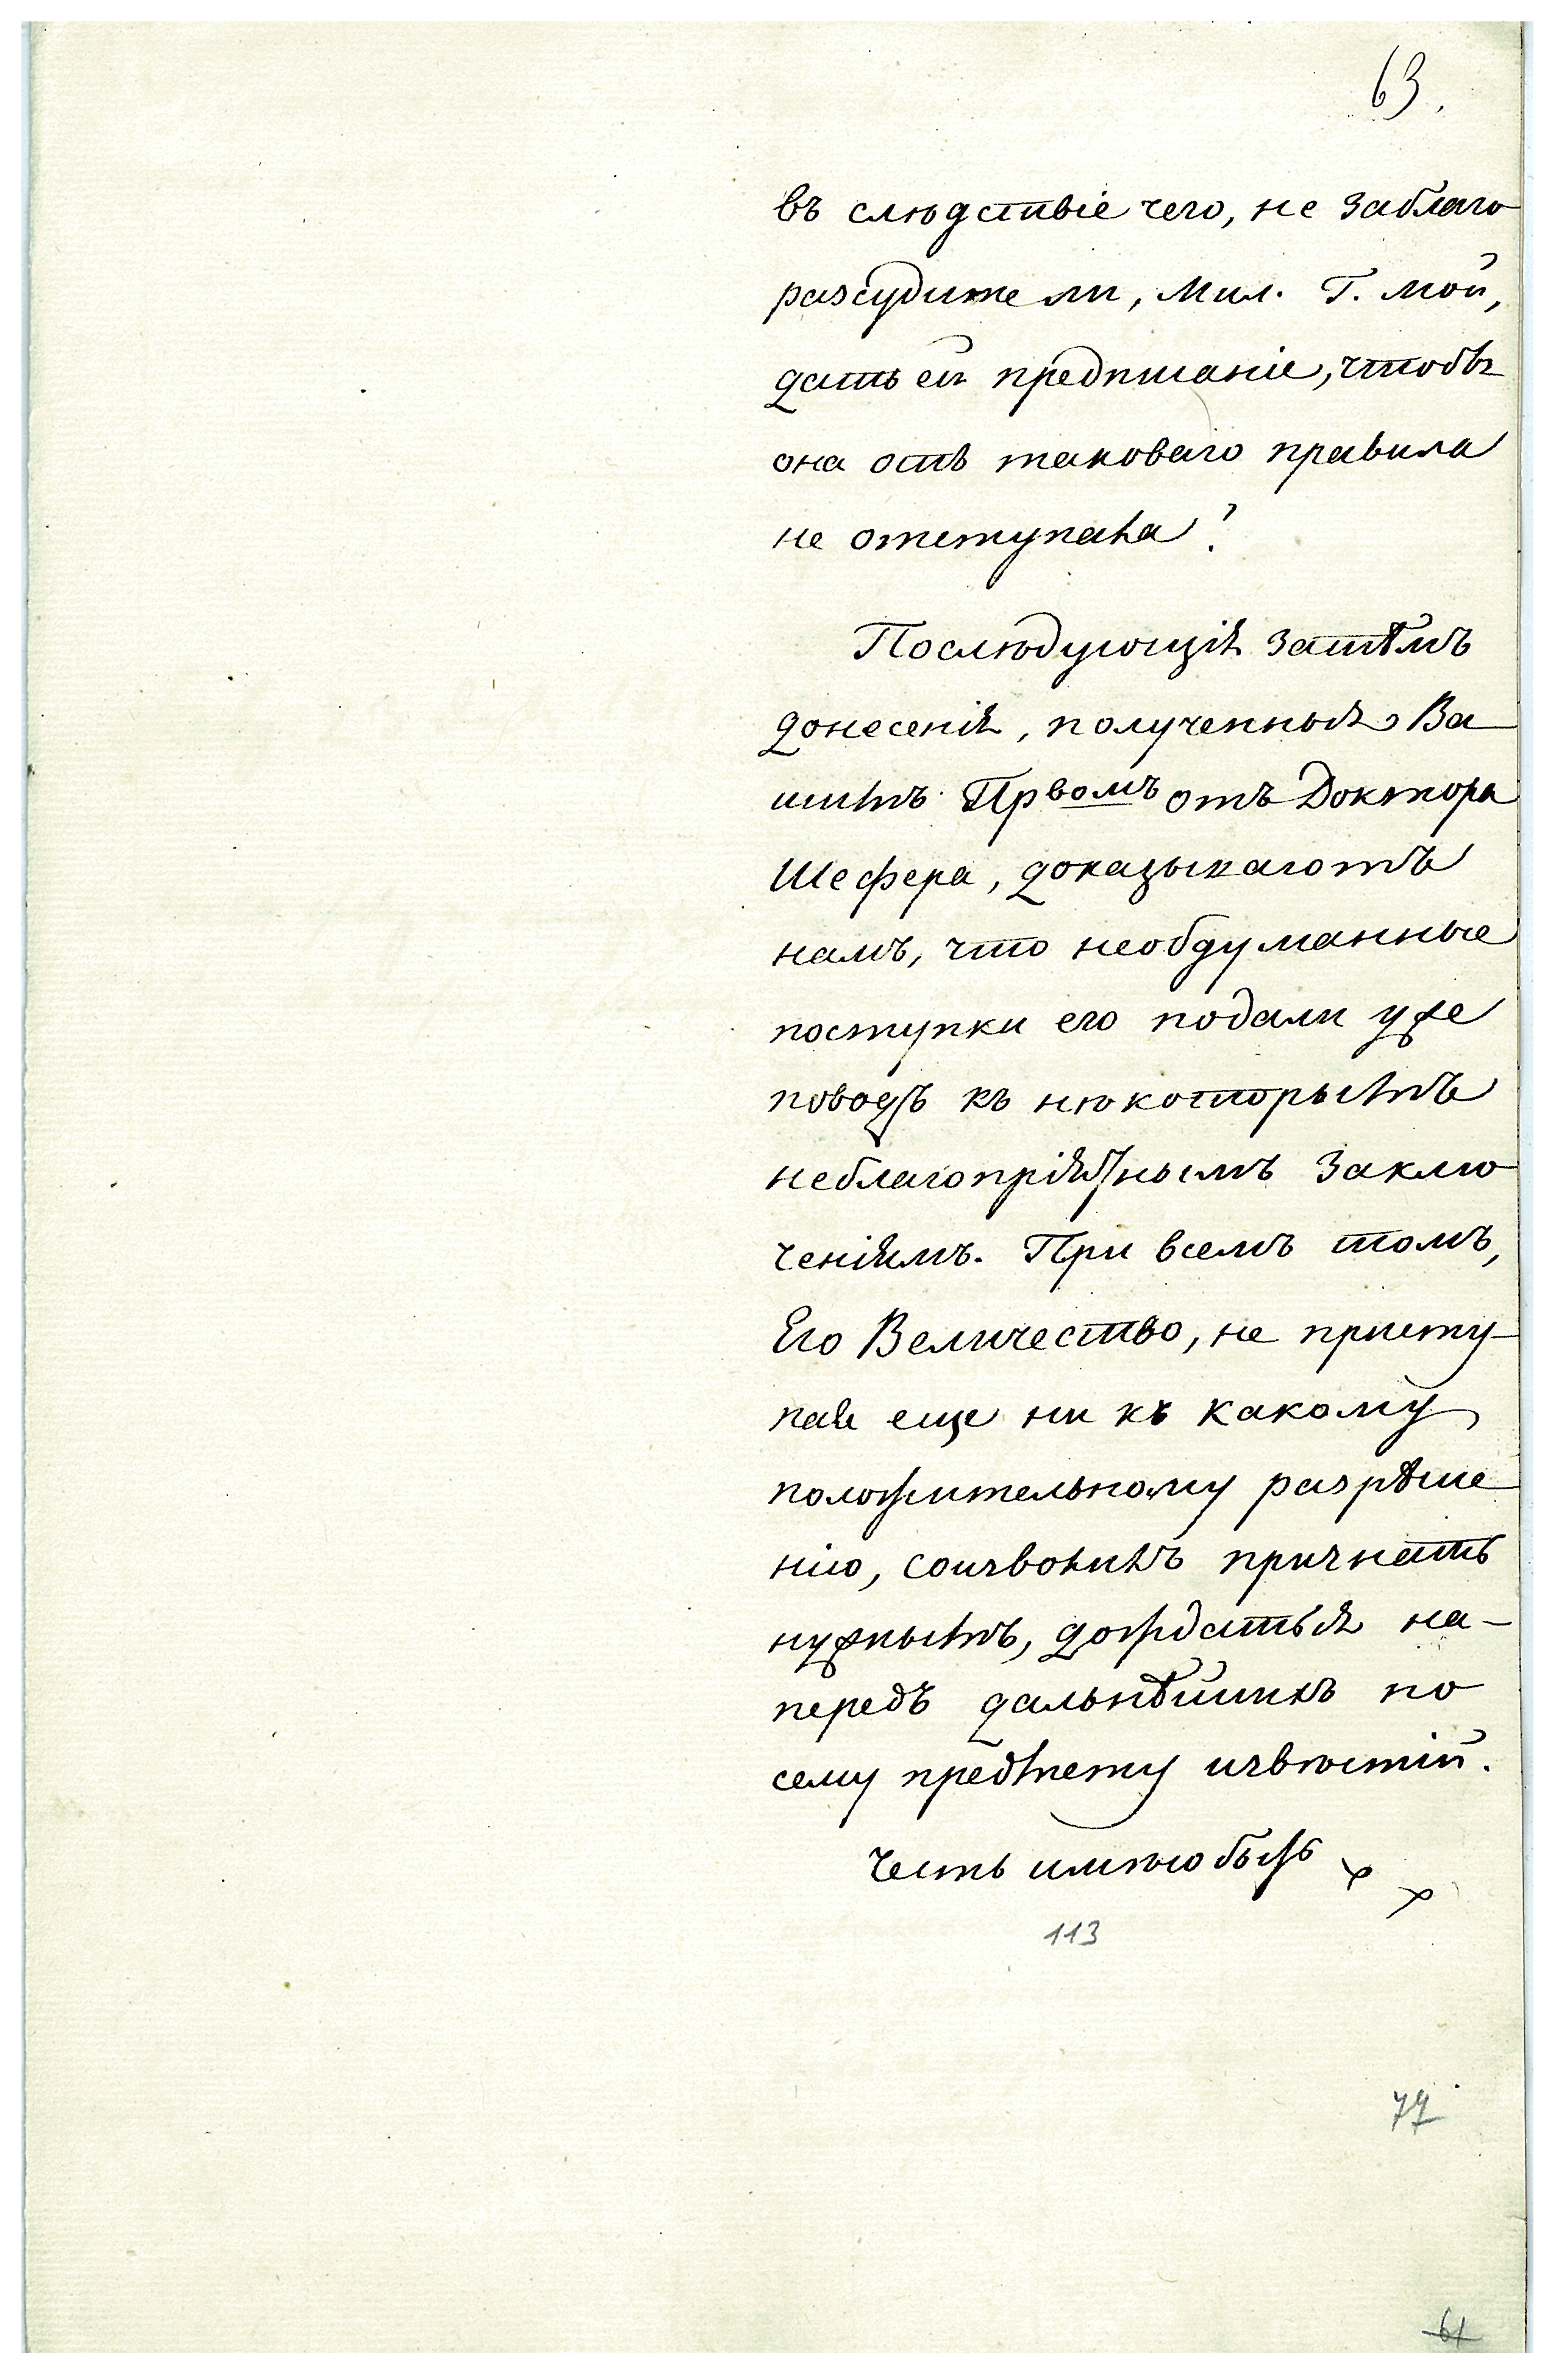 63.
въ слѣдствіе чего, не заблаго
разсудите ли, Мил. Г. мой,
дать ей предписаніе, чтобъ
она отъ таковаго правила
не отступала?
Послѣдующія затѣмъ
донесенія, полученныя Ва
шимъ Првомъ отъ Доктора
Шефера, доказываютъ
намъ, что необдуманные
поступки его подали уже
поводъ къ нѣкоторымъ
неблагопріятнымъ заклю
ченіямъ. При всемъ томъ,
Его Величество, не присту-
пая еще ни къ какому
положительному разрѣше
нію, соизволилъ признать
нужнымъ, дождаться на-
передъ дальнѣйшихъ по
сему предмету извѣстій.
Честь имѣю быть
113
77
61